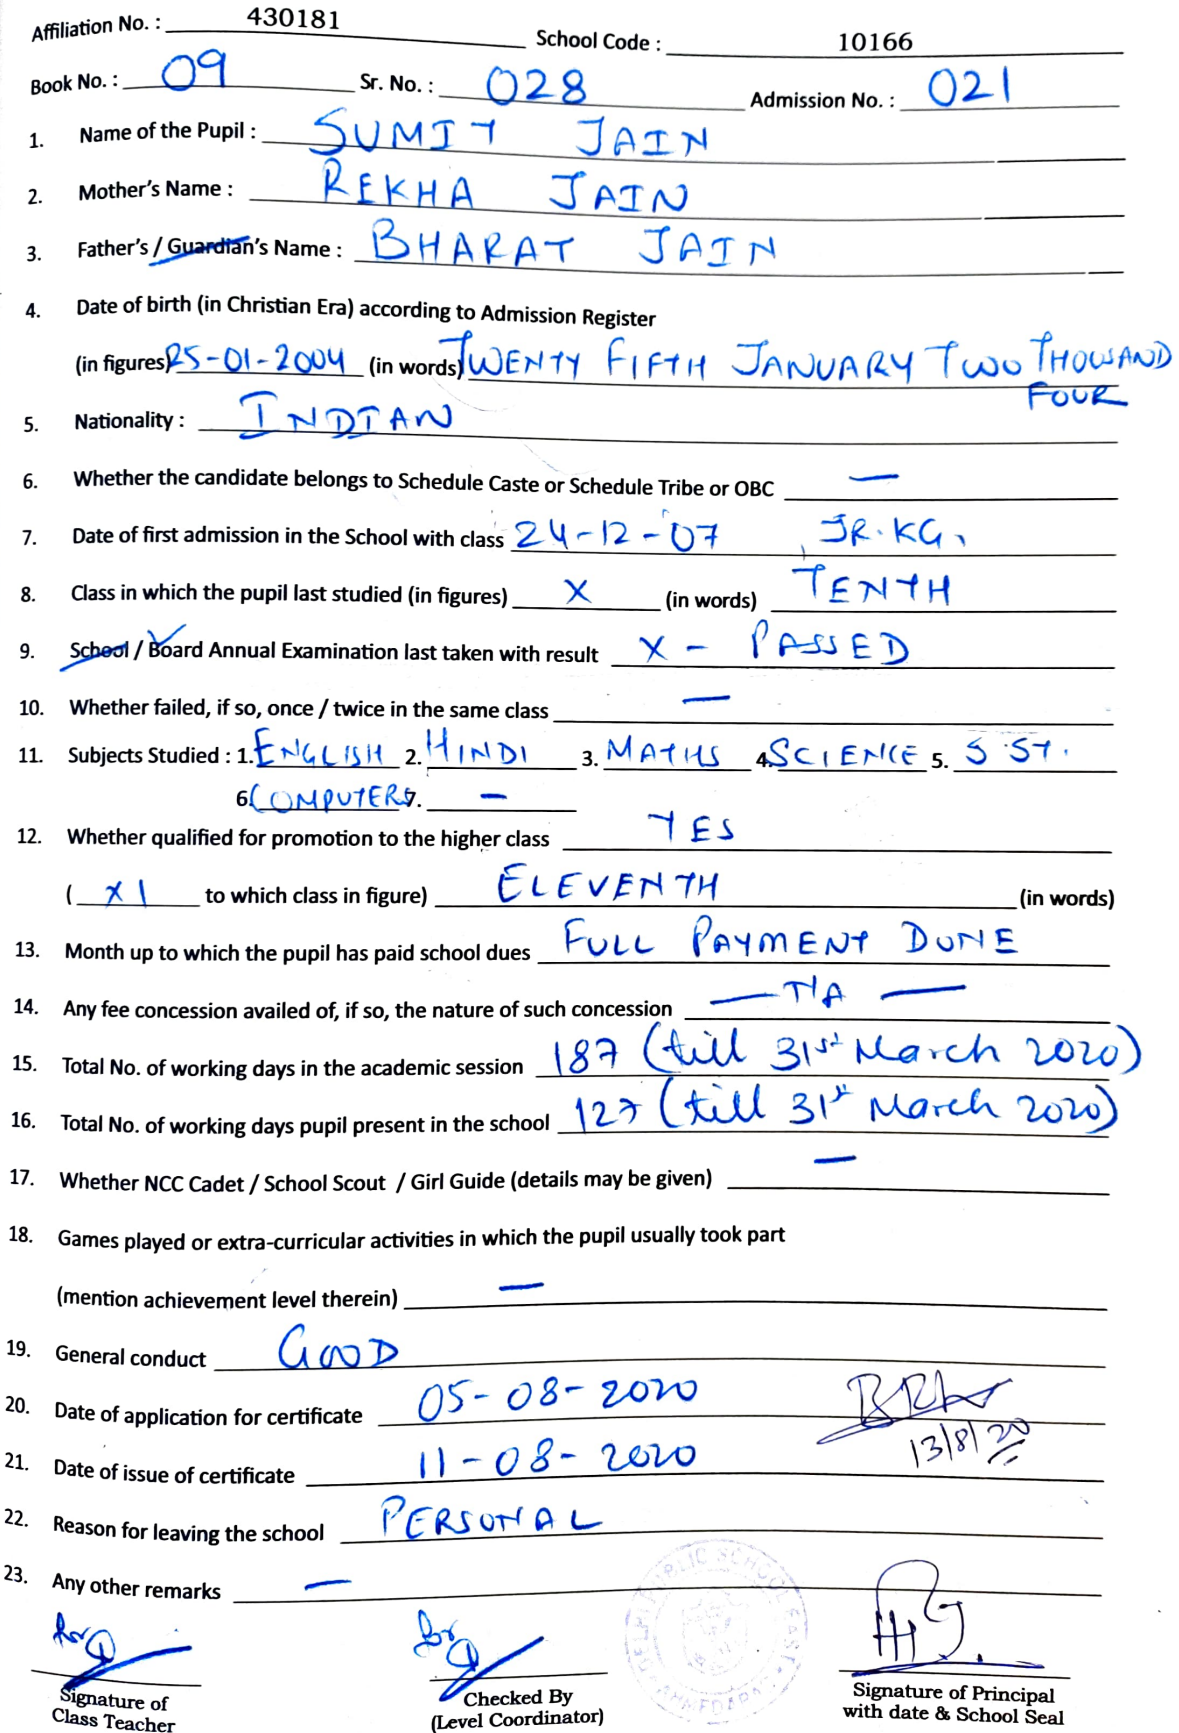 Affiliation No. : 430181 School Code : 10166
Book No. : 09 Sr. No. : 028 Admission No. : 021
1. Name of the Pupil : SUMIT JAIN
2. Mother's Name : REKHA JAIN
3. Father's / Guardian's Name : BHARAT JAIN
4. Date of birth (in Christian Era) according to Admission Register
(in figures) 25-01-2004 (in words) TWENTY FIFTH JANUARY TWO THOUSAND
FOUR
5. Nationality : INDIAN
6. Whether the candidate belongs to Schedule Caste or Schedule Tribe or OBC —
7. Date of first admission in the School with class 24-12-07, JR. KG.
8. Class in which the pupil last studied (in figures) X (in words) TENTH
9. School / Board Annual Examination last taken with result X - PASSED
10. Whether failed, if so, once / twice in the same class —
11. Subjects Studied : 1. ENGLISH 2. HINDI 3. MATHS 4. SCIENCE 5. S ST.
6. COMPUTERS 7. —
12. Whether qualified for promotion to the higher class YES
( XI to which class in figure) ELEVENTH (in words)
13. Month up to which the pupil has paid school dues FULL PAYMENT DONE
14. Any fee concession availed of, if so, the nature of such concession — N/A —
15. Total No. of working days in the academic session 187 (till 31st March 2020)
16. Total No. of working days pupil present in the school 127 (till 31st March 2020)
17. Whether NCC Cadet / School Scout / Girl Guide (details may be given) —
18. Games played or extra-curricular activities in which the pupil usually took part
(mention achievement level therein) —
19. General conduct GOOD
20. Date of application for certificate 05-08-2020
13/8/20
21. Date of issue of certificate 11-08-2020
22. Reason for leaving the school PERSONAL
23. Any other remarks —
DELHI PUBLIC SCHOOL EAST AHMEDABAD
for for
Signature of Class Teacher
Checked By (Level Coordinator)
Signature of Principal with date & School Seal